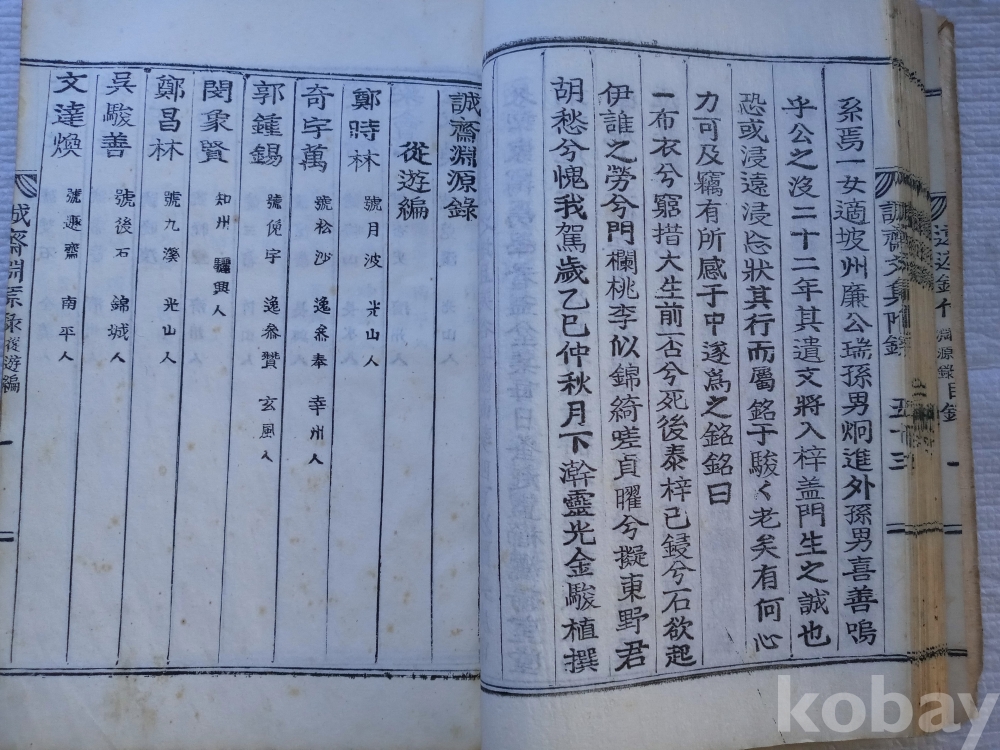 系焉一女適坡州廉公瑞孫男炯進外孫男喜善嗚
乎公之沒二十二年其遺文將入梓盖門生之誠也
恐或浸遠浸忘狀其行而屬銘于駿く老矣有何心
力可及竊有所感于中遂爲之銘銘曰
一布衣兮窮措大生前一否兮死後泰梓已鋟兮一石欲起
伊誰之勞兮門欄桃李似錦綺嗟貞曜兮擬東野君
胡愁兮愧我駕歲乙巳仲秋月下澣靈光金駿植撰
誠齋淵源錄
從遊編
鄭時林 號月波 光山人
奇宇萬 號松沙 逸叅奉 幸州人
郭鍾錫 號俛宇 逸叅贊 玄風人
閔象賢 知州 驪興人
鄭昌林 號九溪 光山人
吳駿善 號後石 錦城人
文達煥 號遯齋 南平人
誠齋淵源錄 從遊編 一
誠齋文集附錄 五十三
淵源錄目錄 一
kobay